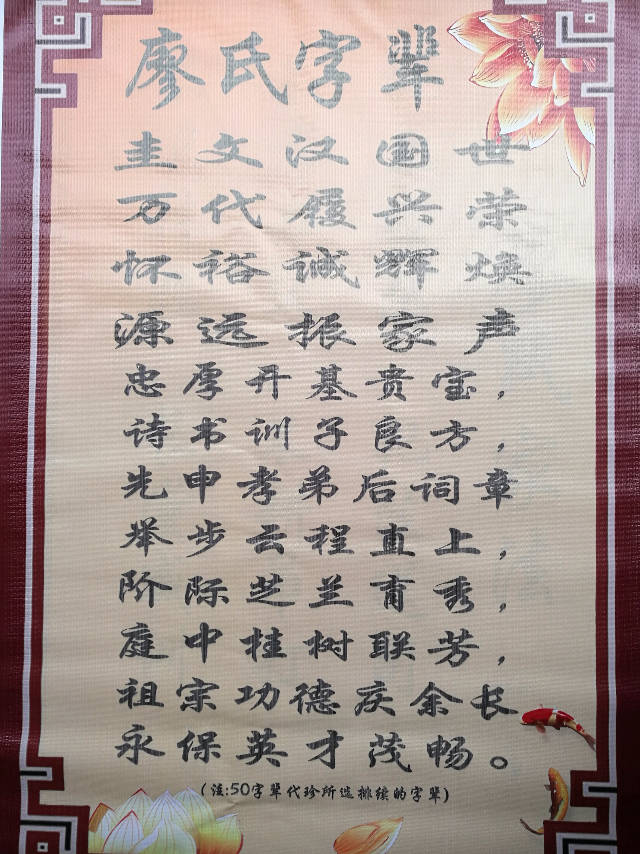 廖氏字辈
圭文汉国世
万代履兴荣
怀裕诚辉焕
源远振家声
忠厚开基贵宝，
诗书训子良方，
先申孝弟后词章
举步云程直上，
阶际芝兰育秀，
庭中桂树联芳，
祖宗功德庆余长
永保英才茂畅。
(注:50字辈代珍所选排续的字辈)